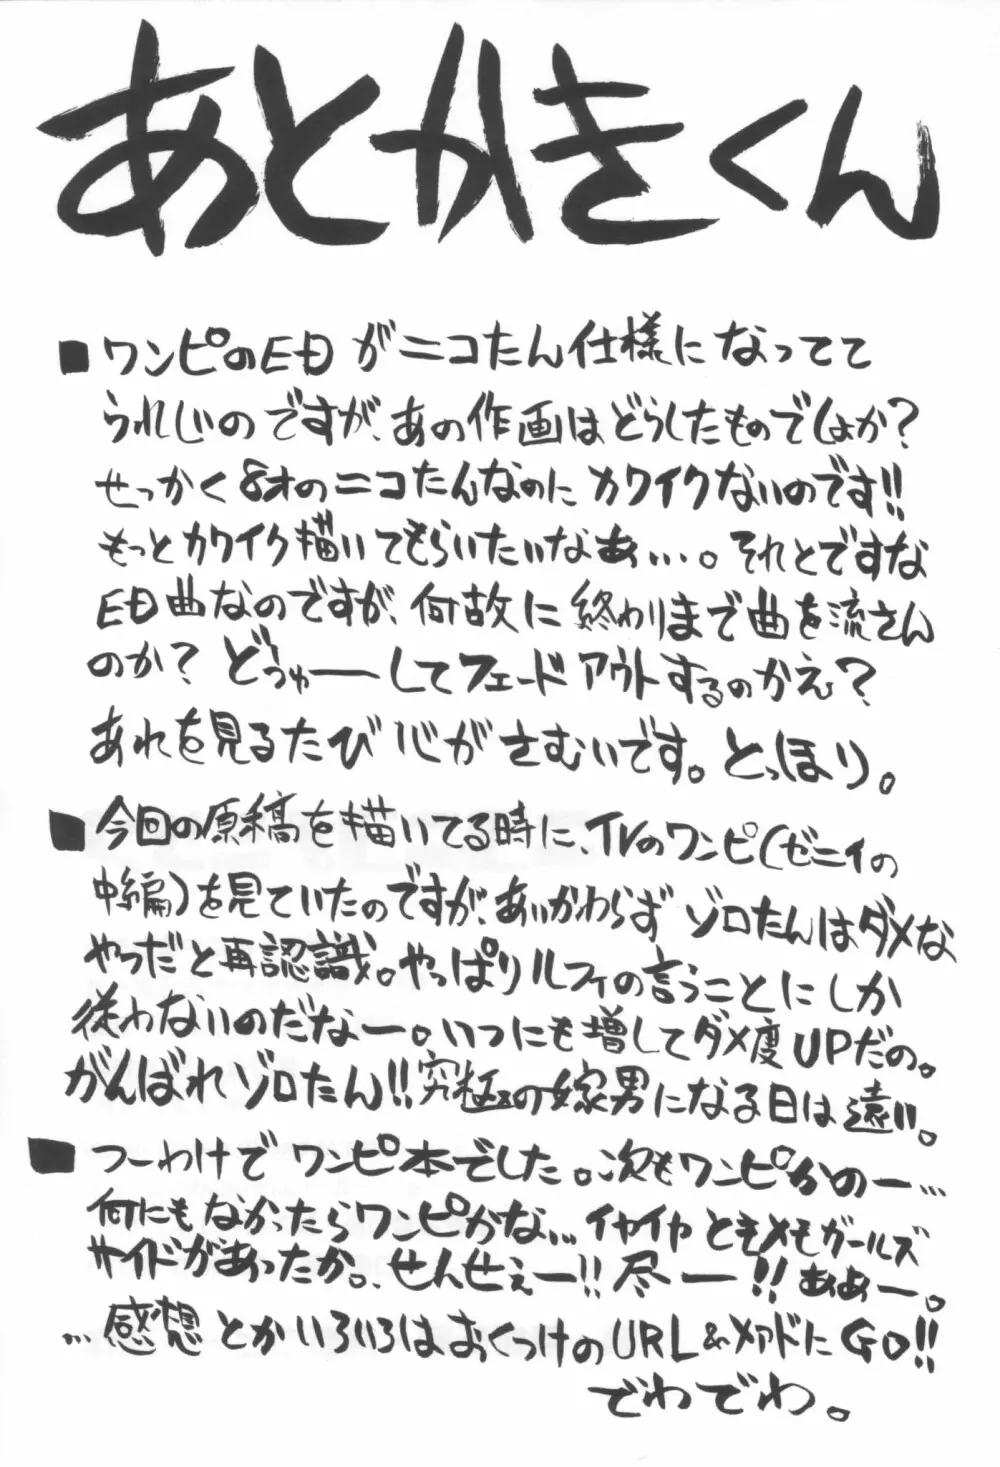 あとかきくん
■ワンピのEDがニコたん仕様になってて
うれしいのですが、あの作画はどうしたものでしょか？
せっかく8才のニコたんなのにカワイクないのです!!
もっとカワイク描いてもらいたいなぁ…。それとですな
ED曲なのですが、何故に終わりまで曲を流さん
のか？どぅゅーーしてフェードアウトするのかえ？
あれを見るたび心がさむいです。とっほり。
■今回の原稿を描いてる時に、TVのワンピ(ゼニィの
中編)を見ていたのですが、あいかわらずゾロたんはダメな
やつだと再認識。やっぱりルフィの言うことにしか
従わないのだなー。いつにも増してダメ度UPだの。
がんばれゾロたん!!究極の嫁男になる日は遠い。
■つーわけでワンピ本でした。次もワンピかのー…
何にもなかったらワンピかな…イヤイヤときメモガールズ
サイドがあったか。せんせぇー!!尽ー!!ああー。
…感想とかいろいろはおくつけのURL&メアドにGO!!
でわでわ。